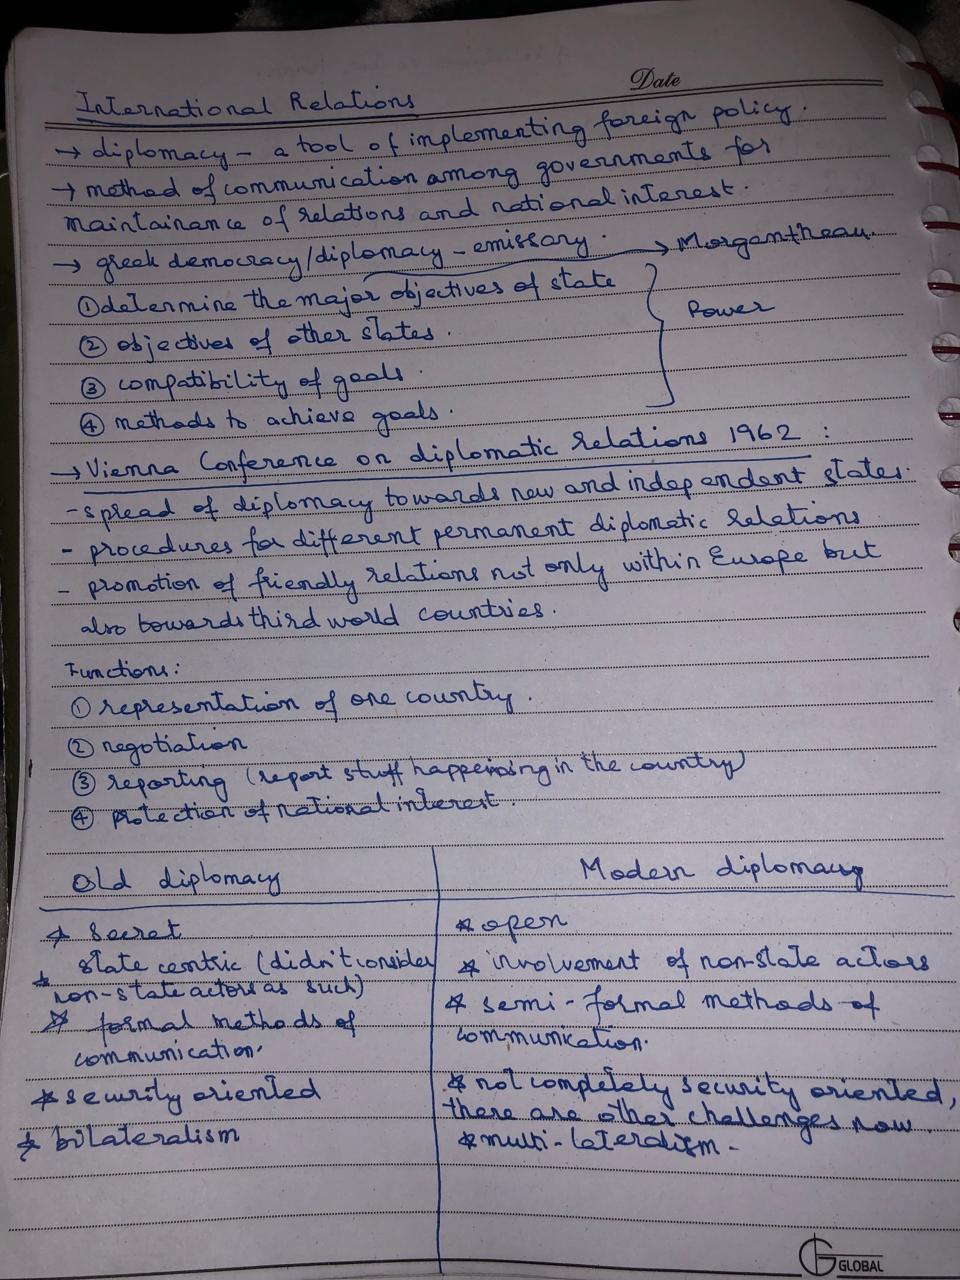 Date
International Relations
→ diplomacy - a tool of implementing foreign policy.
→ method of communication among governments for
maintainance of relations and national interest.
→ greek democracy/diplomacy - emissary. → Morgantheau.
① determine the major objectives of state
② objectives of other states.
③ compatibility of goals.
④ methods to achieve goals.
Power
→ Vienna Conference on diplomatic relations 1962 :
- spread of diplomacy towards new and independent states.
- procedures for different permanent diplomatic relations
- promotion of friendly relations not only within Europe but
also towards third world countries.
Functions:
① representation of one country.
② negotiation
③ reporting (report stuff happening in the country)
④ protection of national interest.
Old diplomacy
* secret
* state centric (didn't consider
non-state actors as such)
* formal methods of
communication.
* security oriented
* bilateralism
Modern diplomacy
* open
* involvement of non-state actors
* semi-formal methods of
communication.
* not completely security oriented,
there are other challenges now.
* multi-lateralism -
G GLOBAL